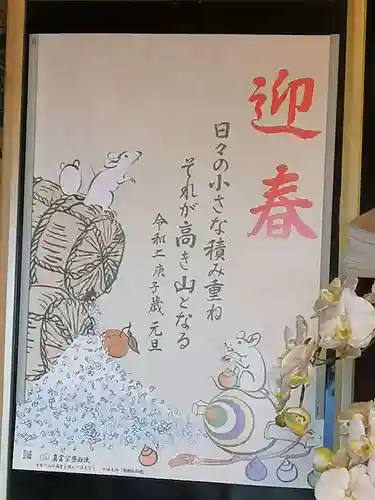 迎春
日々の小さな積み重ね
それが高き山となる
令和二 庚子歳 元旦